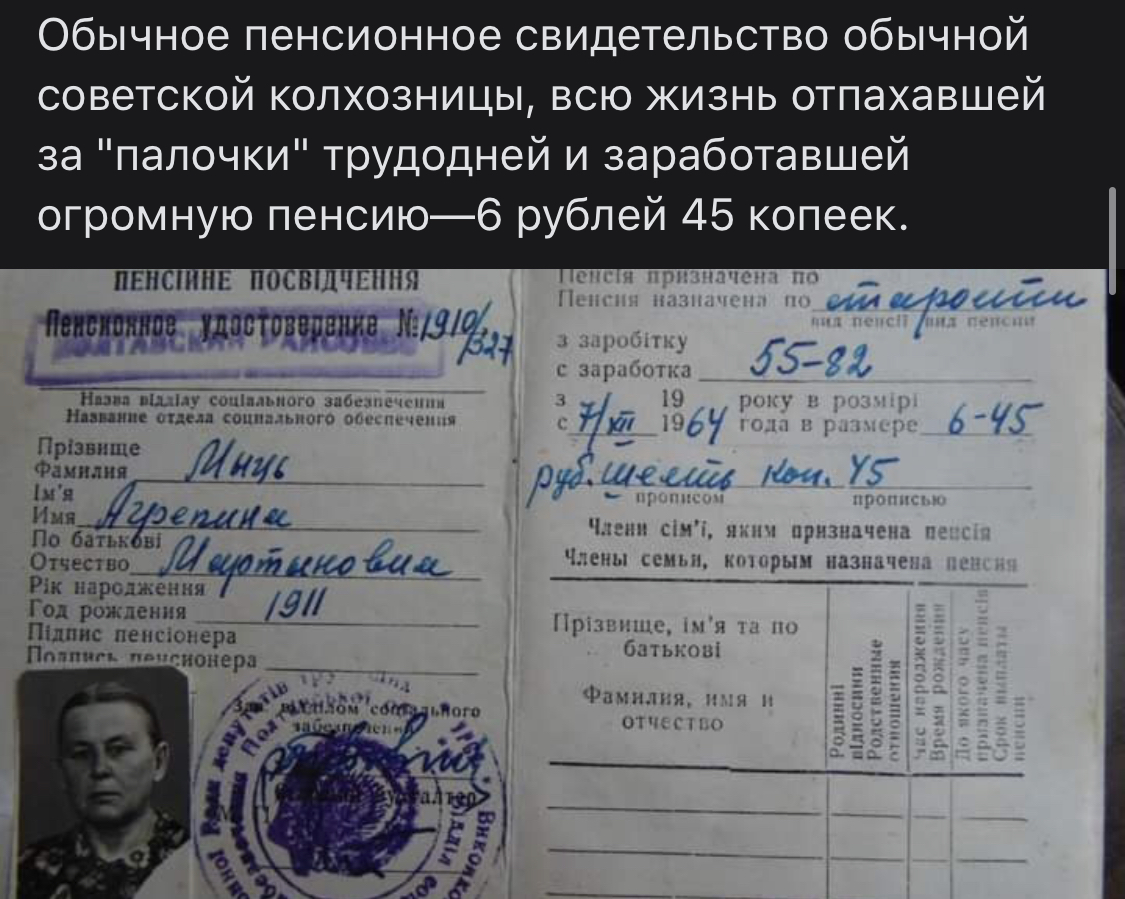 Обычное пенсионное свидетельство обычной
советской колхозницы, всю жизнь отпахавшей
за "палочки" трудодней и заработавшей
огромную пенсию—6 рублей 45 копеек.
ПЕНСІЙНЕ ПОСВІДЧЕННЯ
Пенсионное удостоверение № 1910/327
Назва відділу соціального забезпечення
Название отдела социального обеспечения
Прізвище
Фамилия Мныь
Ім'я
Имя Агрепина
По батькові
Отчество Мартыновна
Рік народження
Год рождения 1911
Підпис пенсіонера
Подпись пенсионера
Зав. відділом соціального
забезпечення
бухгалтер
Пенсія призначена по
Пенсия назначена по старости
вид пенсії вид пенсии
з заробітку
с заработка 55-82
з 19 року в розмірі
с 7/XII 1964 года в размере 6-45
руб. шесть коп. 45
прописом прописью
Члени сім'ї, яким призначена пенсія
Члены семьи, которым назначена пенсия
Прізвище, ім'я та по
батькові
Фамилия, имя и
отчество
Родинні
відносини
Родственные
отношения
Час народження
Время рождения
До якого часу
призначена пенсія
Срок выплаты
пенсии